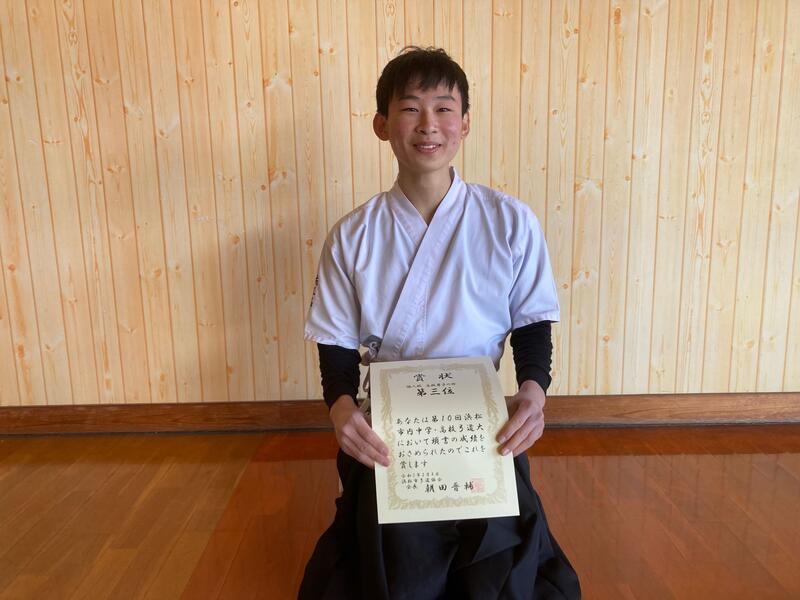 賞状
第三位
あなたは第10回浜松
市内中学・高校弓道大
において頭書の成績を
おさめられたのでこれを
賞します
浜松市弓道協会
会長 朝田晋輔